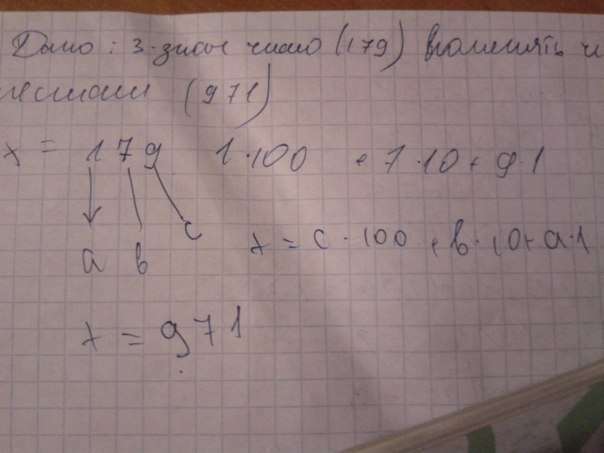 Дано: 3-знач число (179) поменять ч
местами (971)
x = 179 1·100 + 7·10 + 9·1
a в c
x = c·100 + в·10 + a·1
x = 971